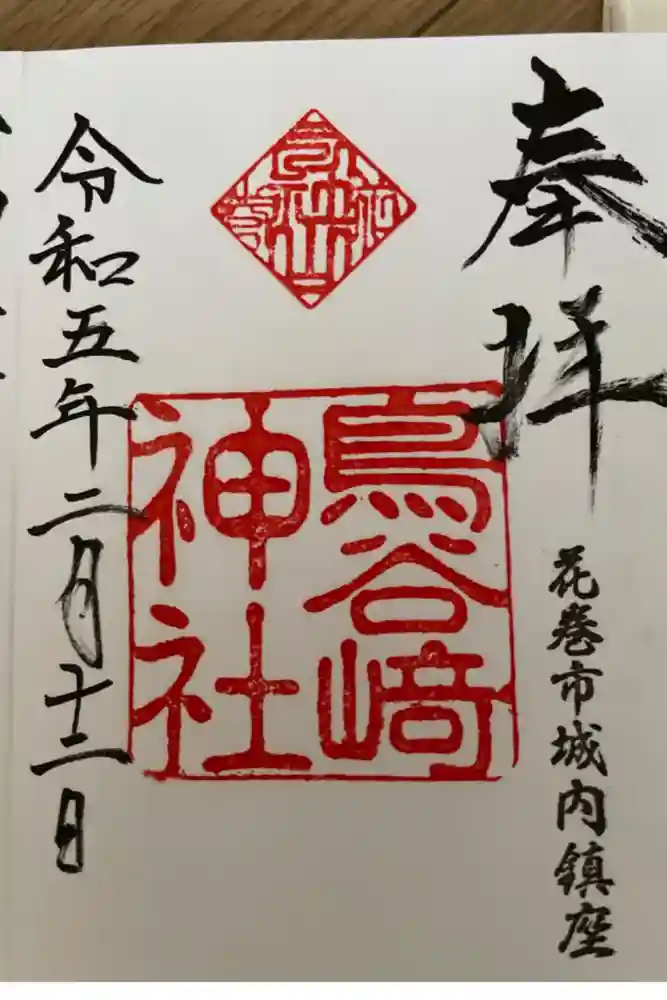 奉拝
花巻市城内鎮座
鳥谷崎
神社
令和五年二月十二日